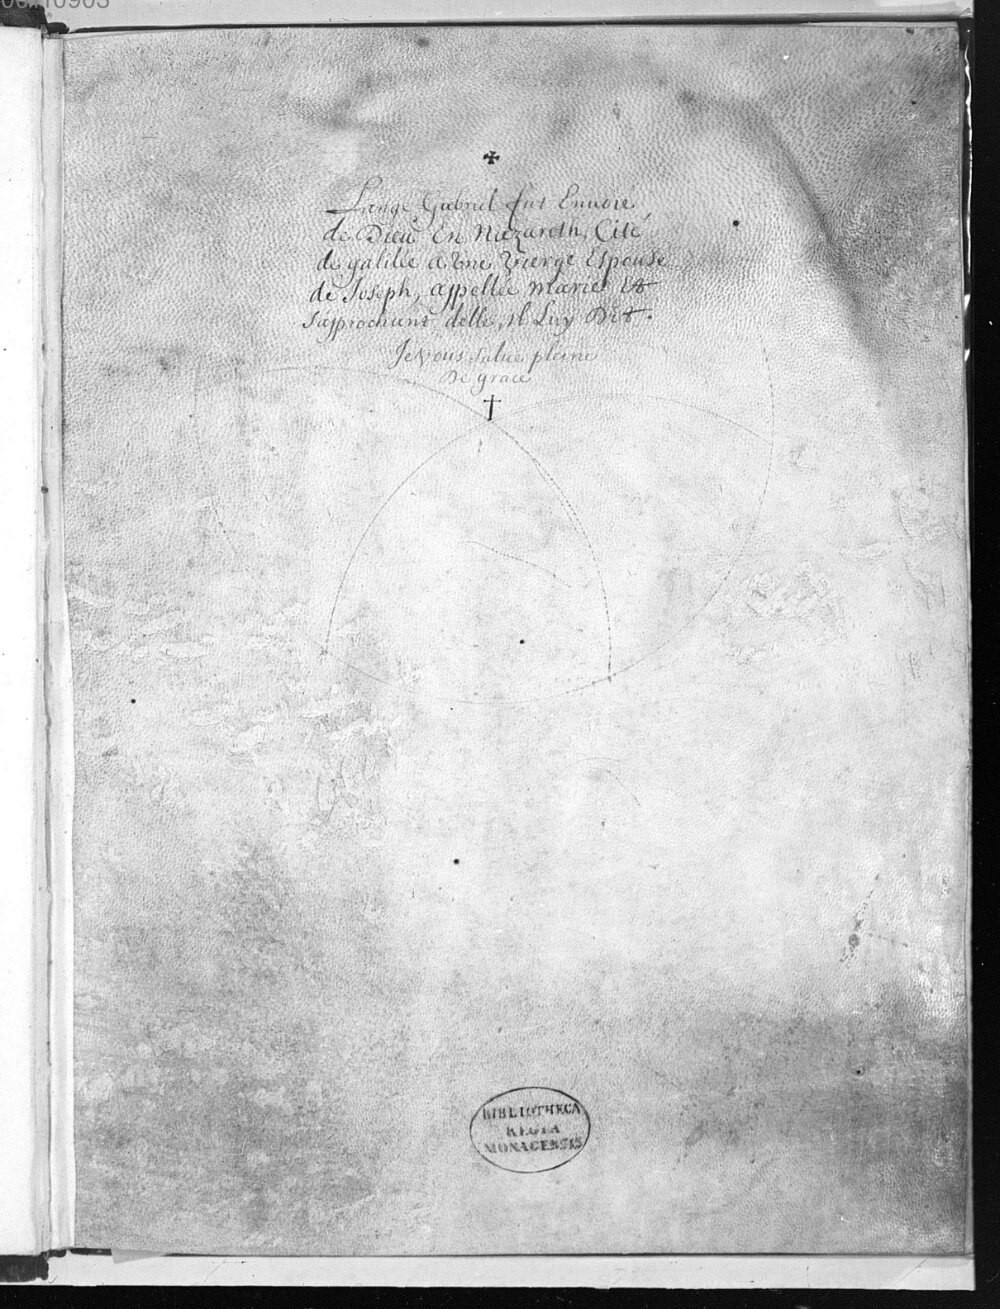 ✠
L'ange Gabriel fut Envoié
de Dieu En Nazareth, Cité
de galilée a Une Vierge Espouse
de Joseph, appellée marie, Et
s'approchant delle, il Luy Dit.
Je vous salue pleine
De grace
†
BIBLIOTHECA
REGIA
MONACENSIS